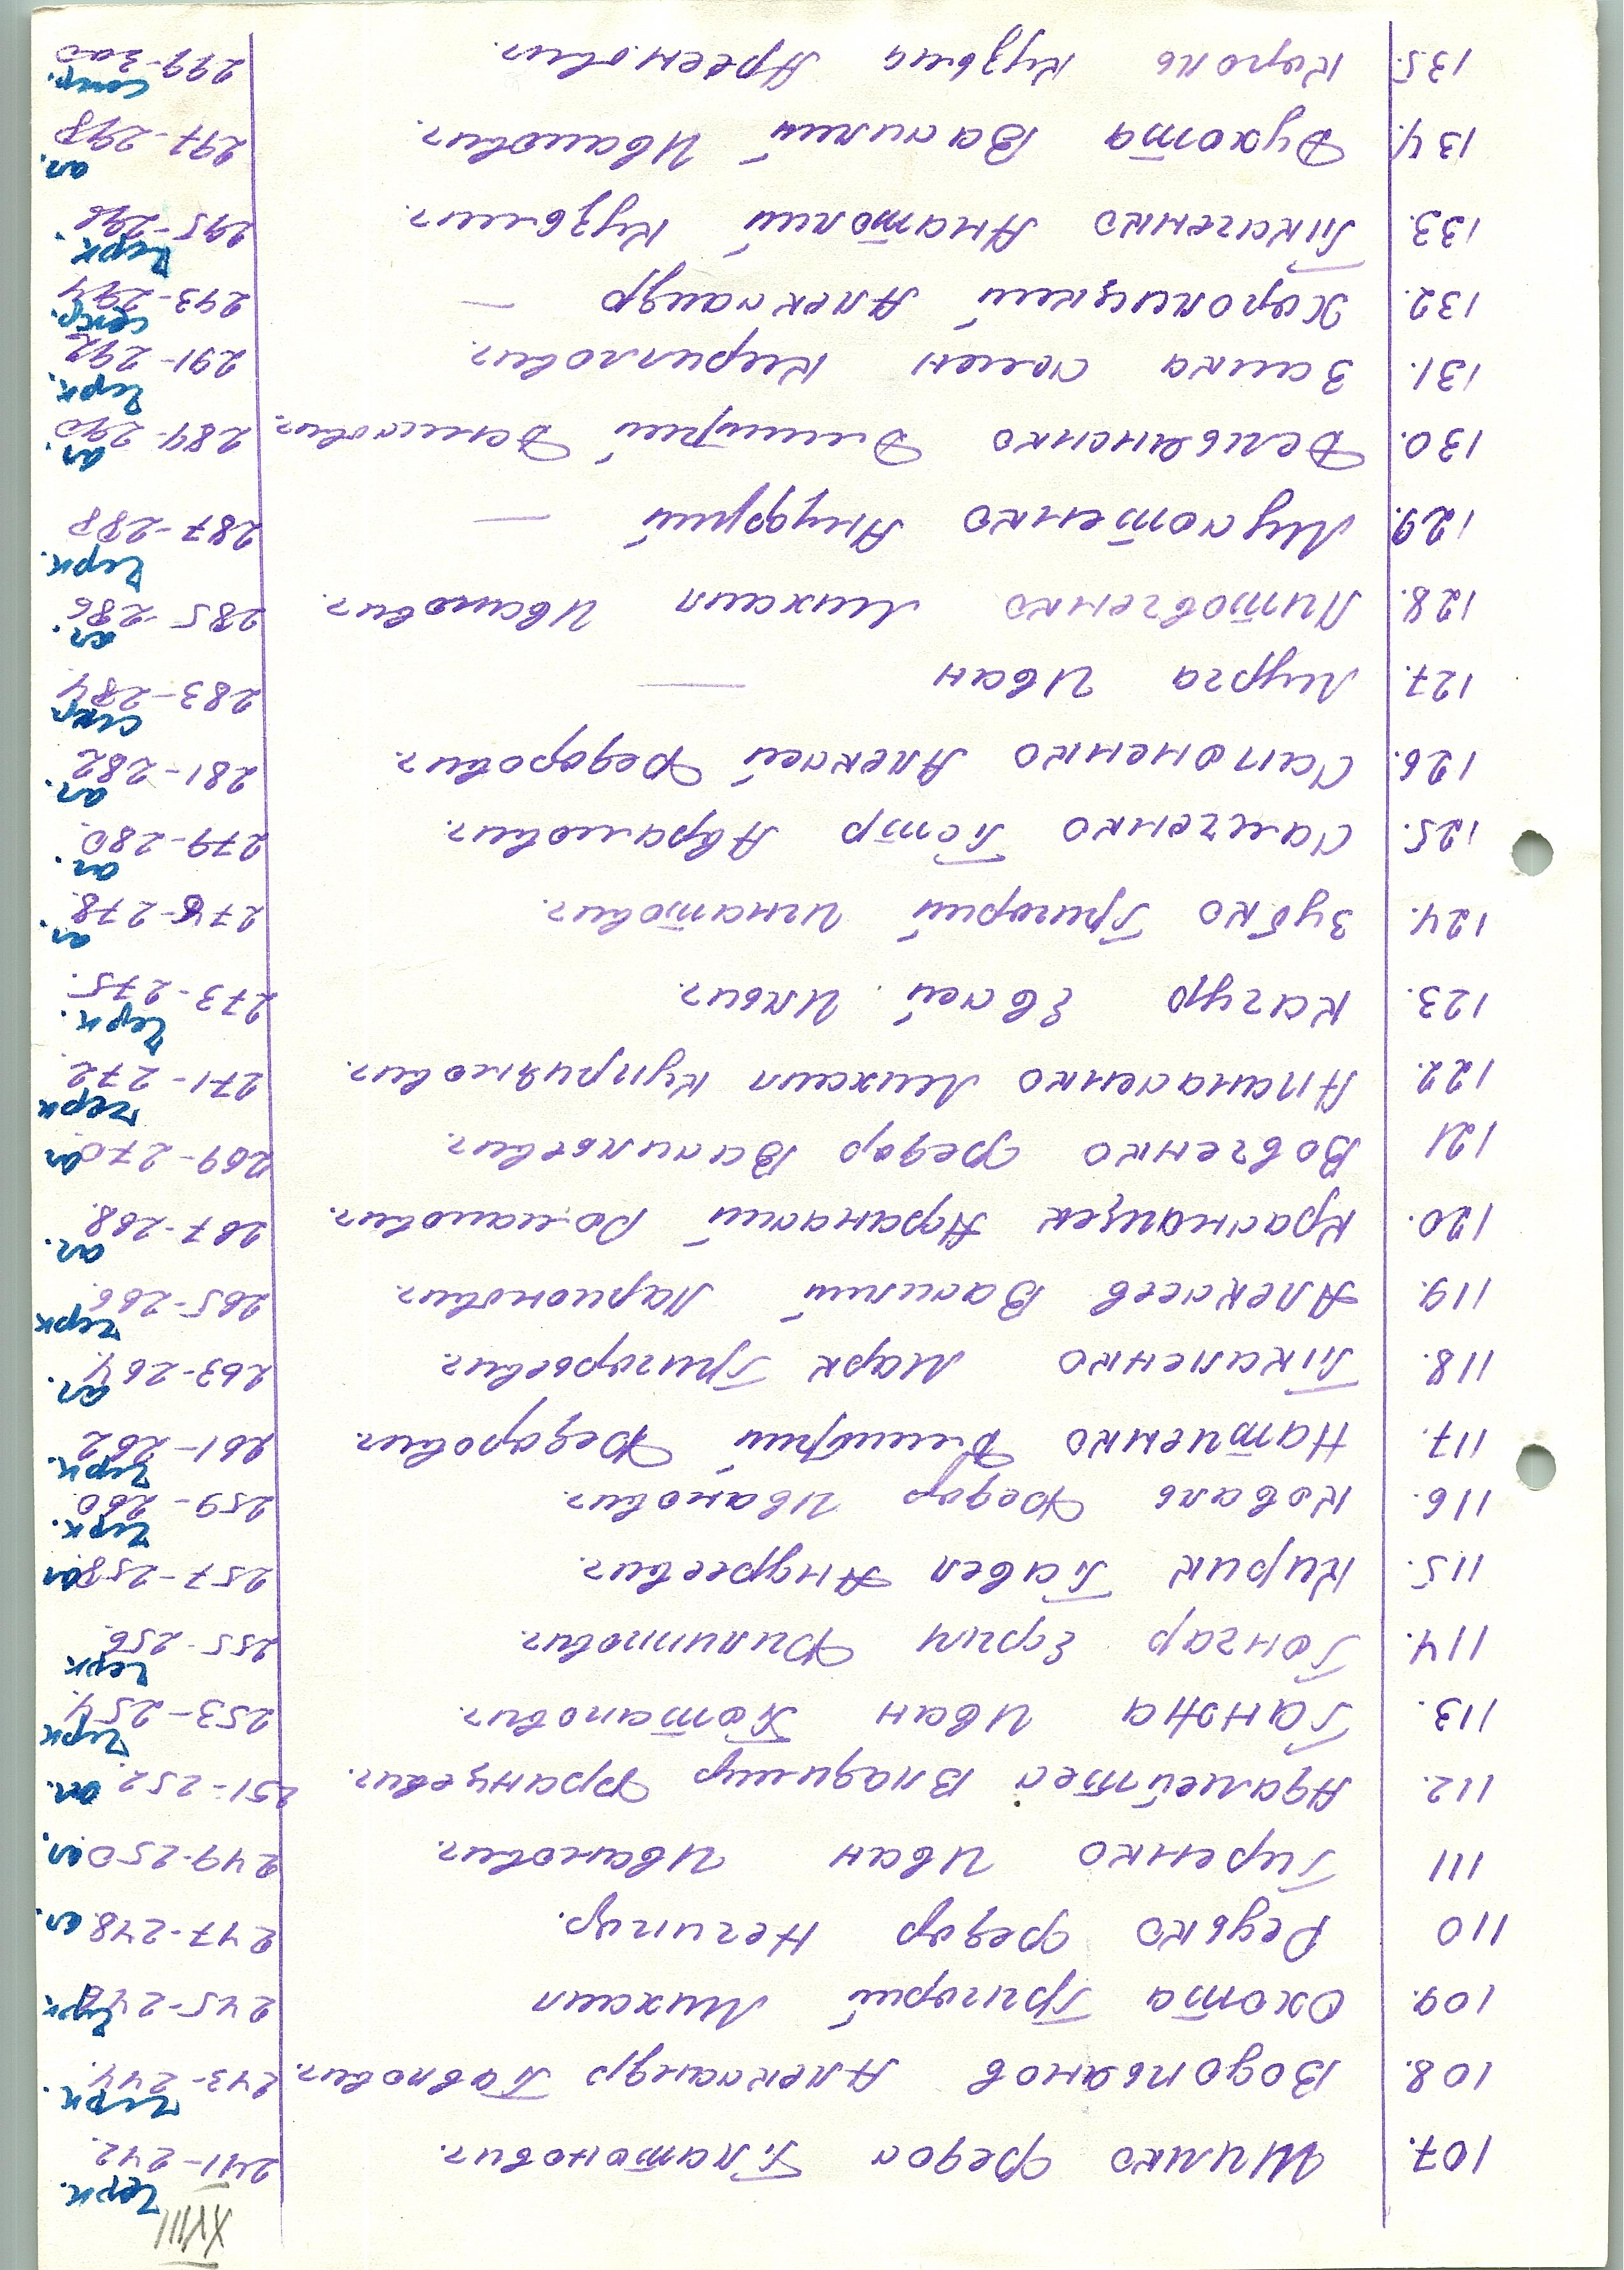 XVIII
107. Шимко Федор Платонович. 241-242. черк.
108. Водопьянов Александр Павлович. 243-244. черк.
109. Охота Григорий Михаил 245-246 черк.
110 Редько Федор Нечипор. 247-248 ал.
111 Гиренко Иван Иванович. 249-250 ал.
112. Адамейтес Владимир Францевич. 251-252. ал.
113. Ганжа Иван Потапович. 253-254. черк
114. Гончар Ефим Филиппович. 255-256. черк
115. Кирик Павел Андреевич. 257-258 ал
116. Коваль Федор Иванович. 259-260. черк.
117. Натиенко Дмитрий Федорович. 261-262 черк.
118. Пикаленко Марк Григорьевич 263-264. ал.
119. Алексеев Василий Ларионович. 265-266. черк
120. Краснощек Афанасий Романович. 267-268. ал.
121 Вовченко Федор Васильевич. 269-270. ал
122. Апанасенко Михаил Куприянович. 271-272. черк
123. Качур Евсей Ильич. 273-275. черк.
124. Зубко Григорий Игнатович. 276-278. ал.
125. Самченко Петр Абрамович. 279-280. ал.
126. Сапоненко Алексей Федорович. 281-282 ал.
127. Мурга Иван — 283-284 смер.
128. Литовченко Михаил Иванович. 285-286 ал.
129. Мусотенко Андрей — 287-288 черк.
130. Демьяненко Дмитрий Денисович. 289-290 ал.
131. Заика Семен Кириллович. 291-292 черк.
132. Хорольский Александр — 293-294 смер.
133. Ткаченко Анатолий Кузьмич. 295-296 черк.
134. Духота Василий Иванович. 297-298 ал.
135. Король Кузьма Арсенович. 299-300 смер.